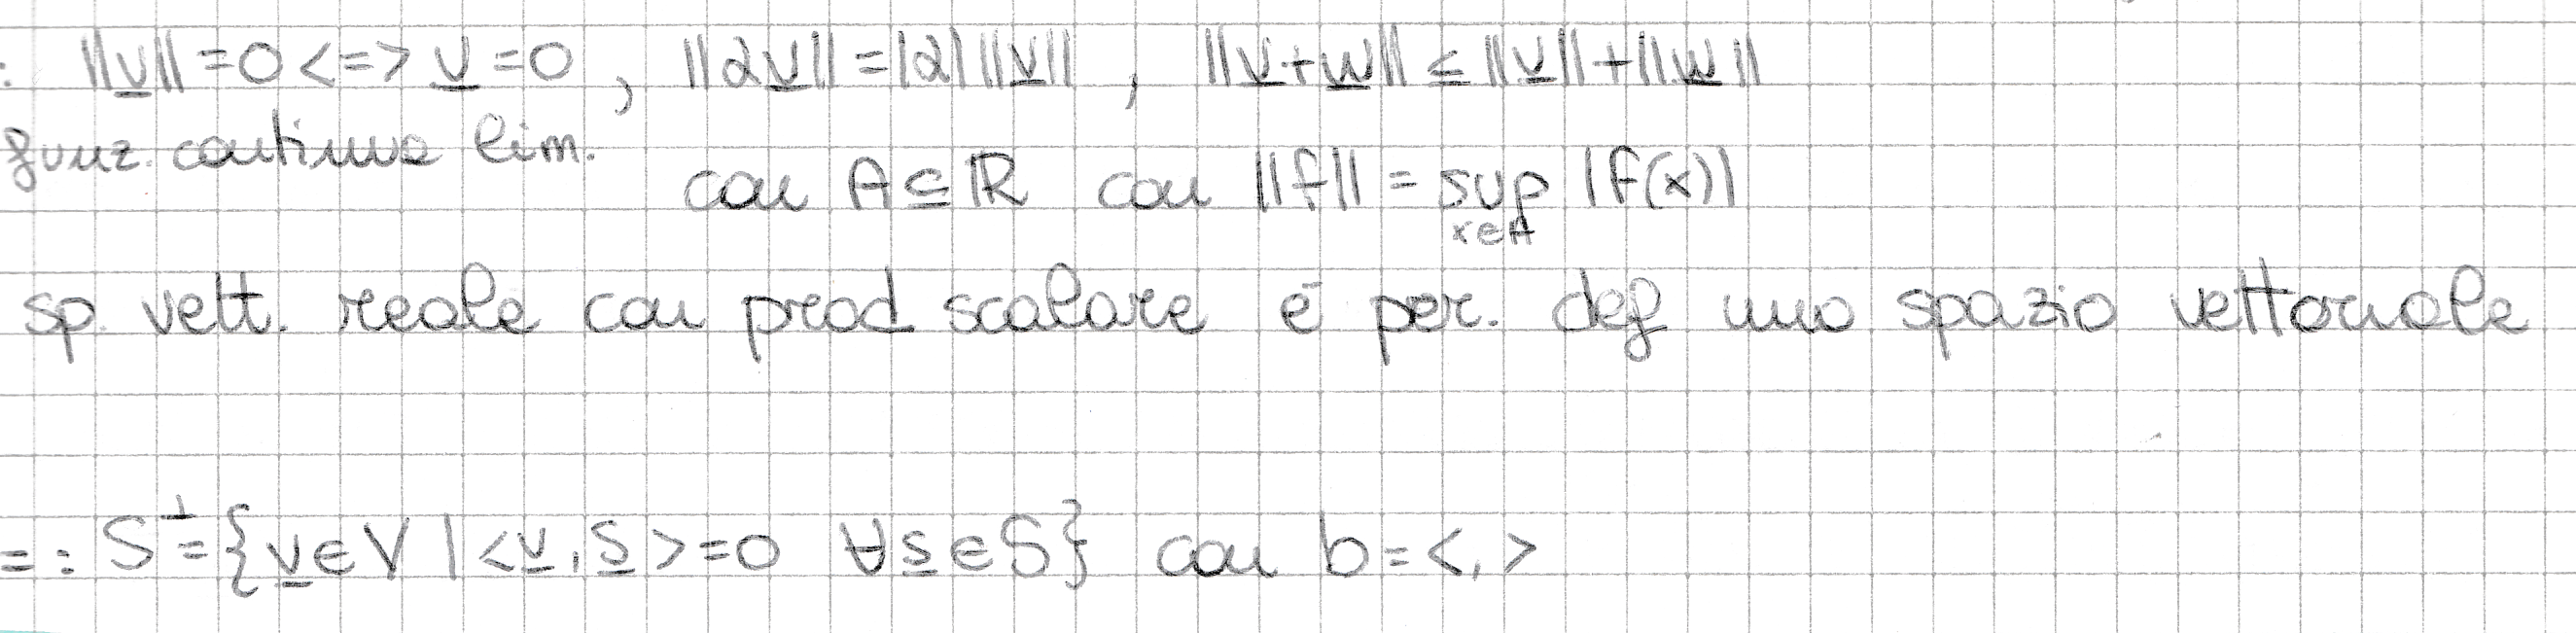 : ||v|| = 0 <=> v = 0 , ||αv|| = |α| ||v|| , ||v+w|| ≤ ||v|| + ||w||
funz. continua lim.
con A ⊆ ℝ con ||f|| = sup |f(x)|
x∈A
sp. vett. reale con prod scalare è per. def uno spazio vettoriale
=: S^⊥ = {v∈V | <v,s>=0 ∀s∈S} con b=<,>